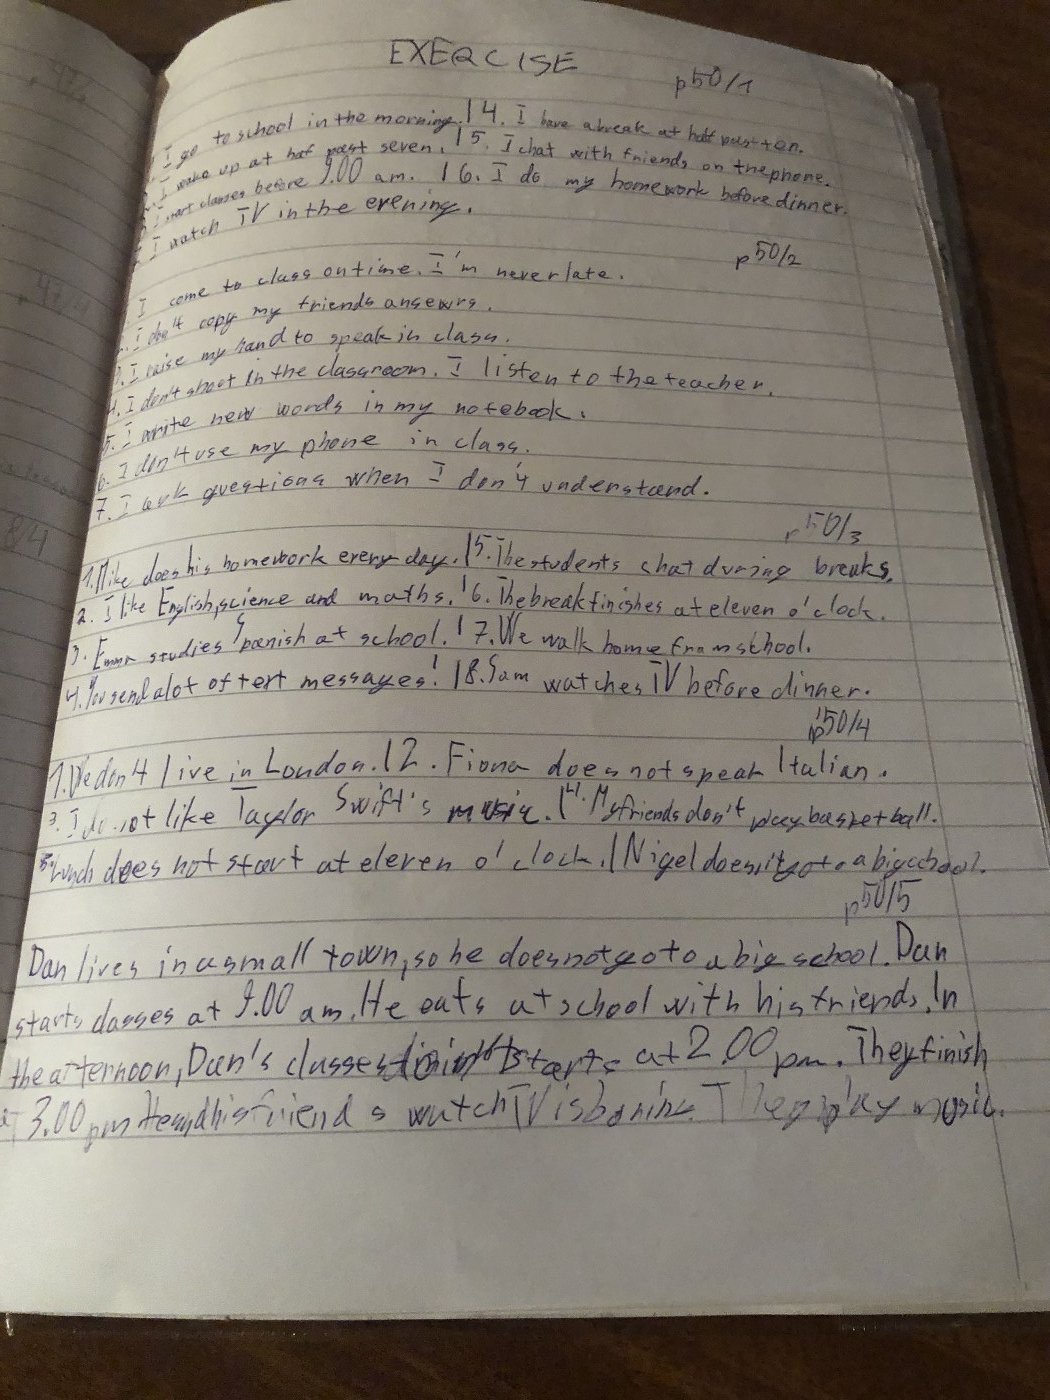 EXERCISE
p50/1
I go to school in the morning. | 4. I have a break at half past ten.
I wake up at half past seven. | 5. I chat with friends on the phone.
I start classes before 9.00 am. | 6. I do my homework before dinner.
I watch TV in the evening.
p50/2
I come to class on time. I'm never late.
I don't copy my friends ansewrs.
3. I raise my hand to speak in class.
4. I don't shoot in the classroom. I listen to the teacher.
5. I write new words in my notebook.
6. I don't use my phone in class.
7. I ask questions when I don't understand.
p50/3
1. Mike does his homework every day. | 5. The students chat during breaks.
2. I like English, science and maths. | 6. The break finishes at eleven o'clock.
3. Emma studies Spanish at school. | 7. We walk home from school.
4. You send a lot of text messages! | 8. Sam watches TV before dinner.
p50/4
1. We don't live in London. | 2. Fiona does not speak Italian.
3. I do not like Taylor Swift's music. | 4. My friends don't play basketball.
5. Lunch does not start at eleven o'clock. | Nigel doesn't go to a big school.
p50/5
Dan lives in a small town, so he does not go to a big school. Dan
starts classes at 9.00 am. He eats at school with his friends. In
the afternoon, Dan's classes starts at 2.00 pm. They finish
at 3.00 pm He and his friend s watch TV is boring. They play music.